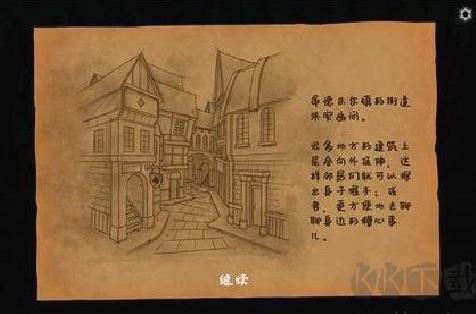 镇的街道
狭窄
很多地方的建筑上
层向外延伸，这
样邻居们就可以探
出身子握手；或
者，更方便地去聊
聊身边的糟心事
儿。
继续
KK下载